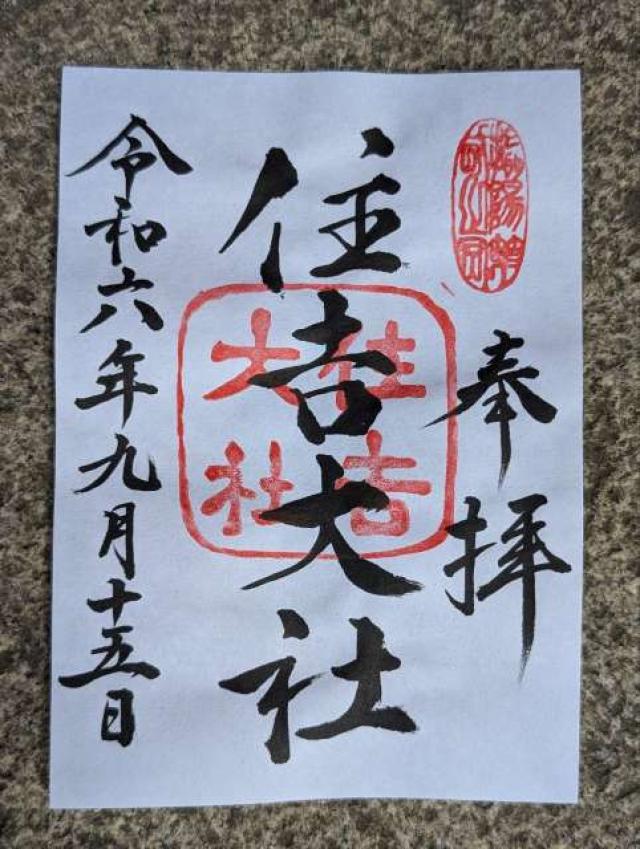 奉拝
住吉大社
住吉大社
令和六年九月十五日